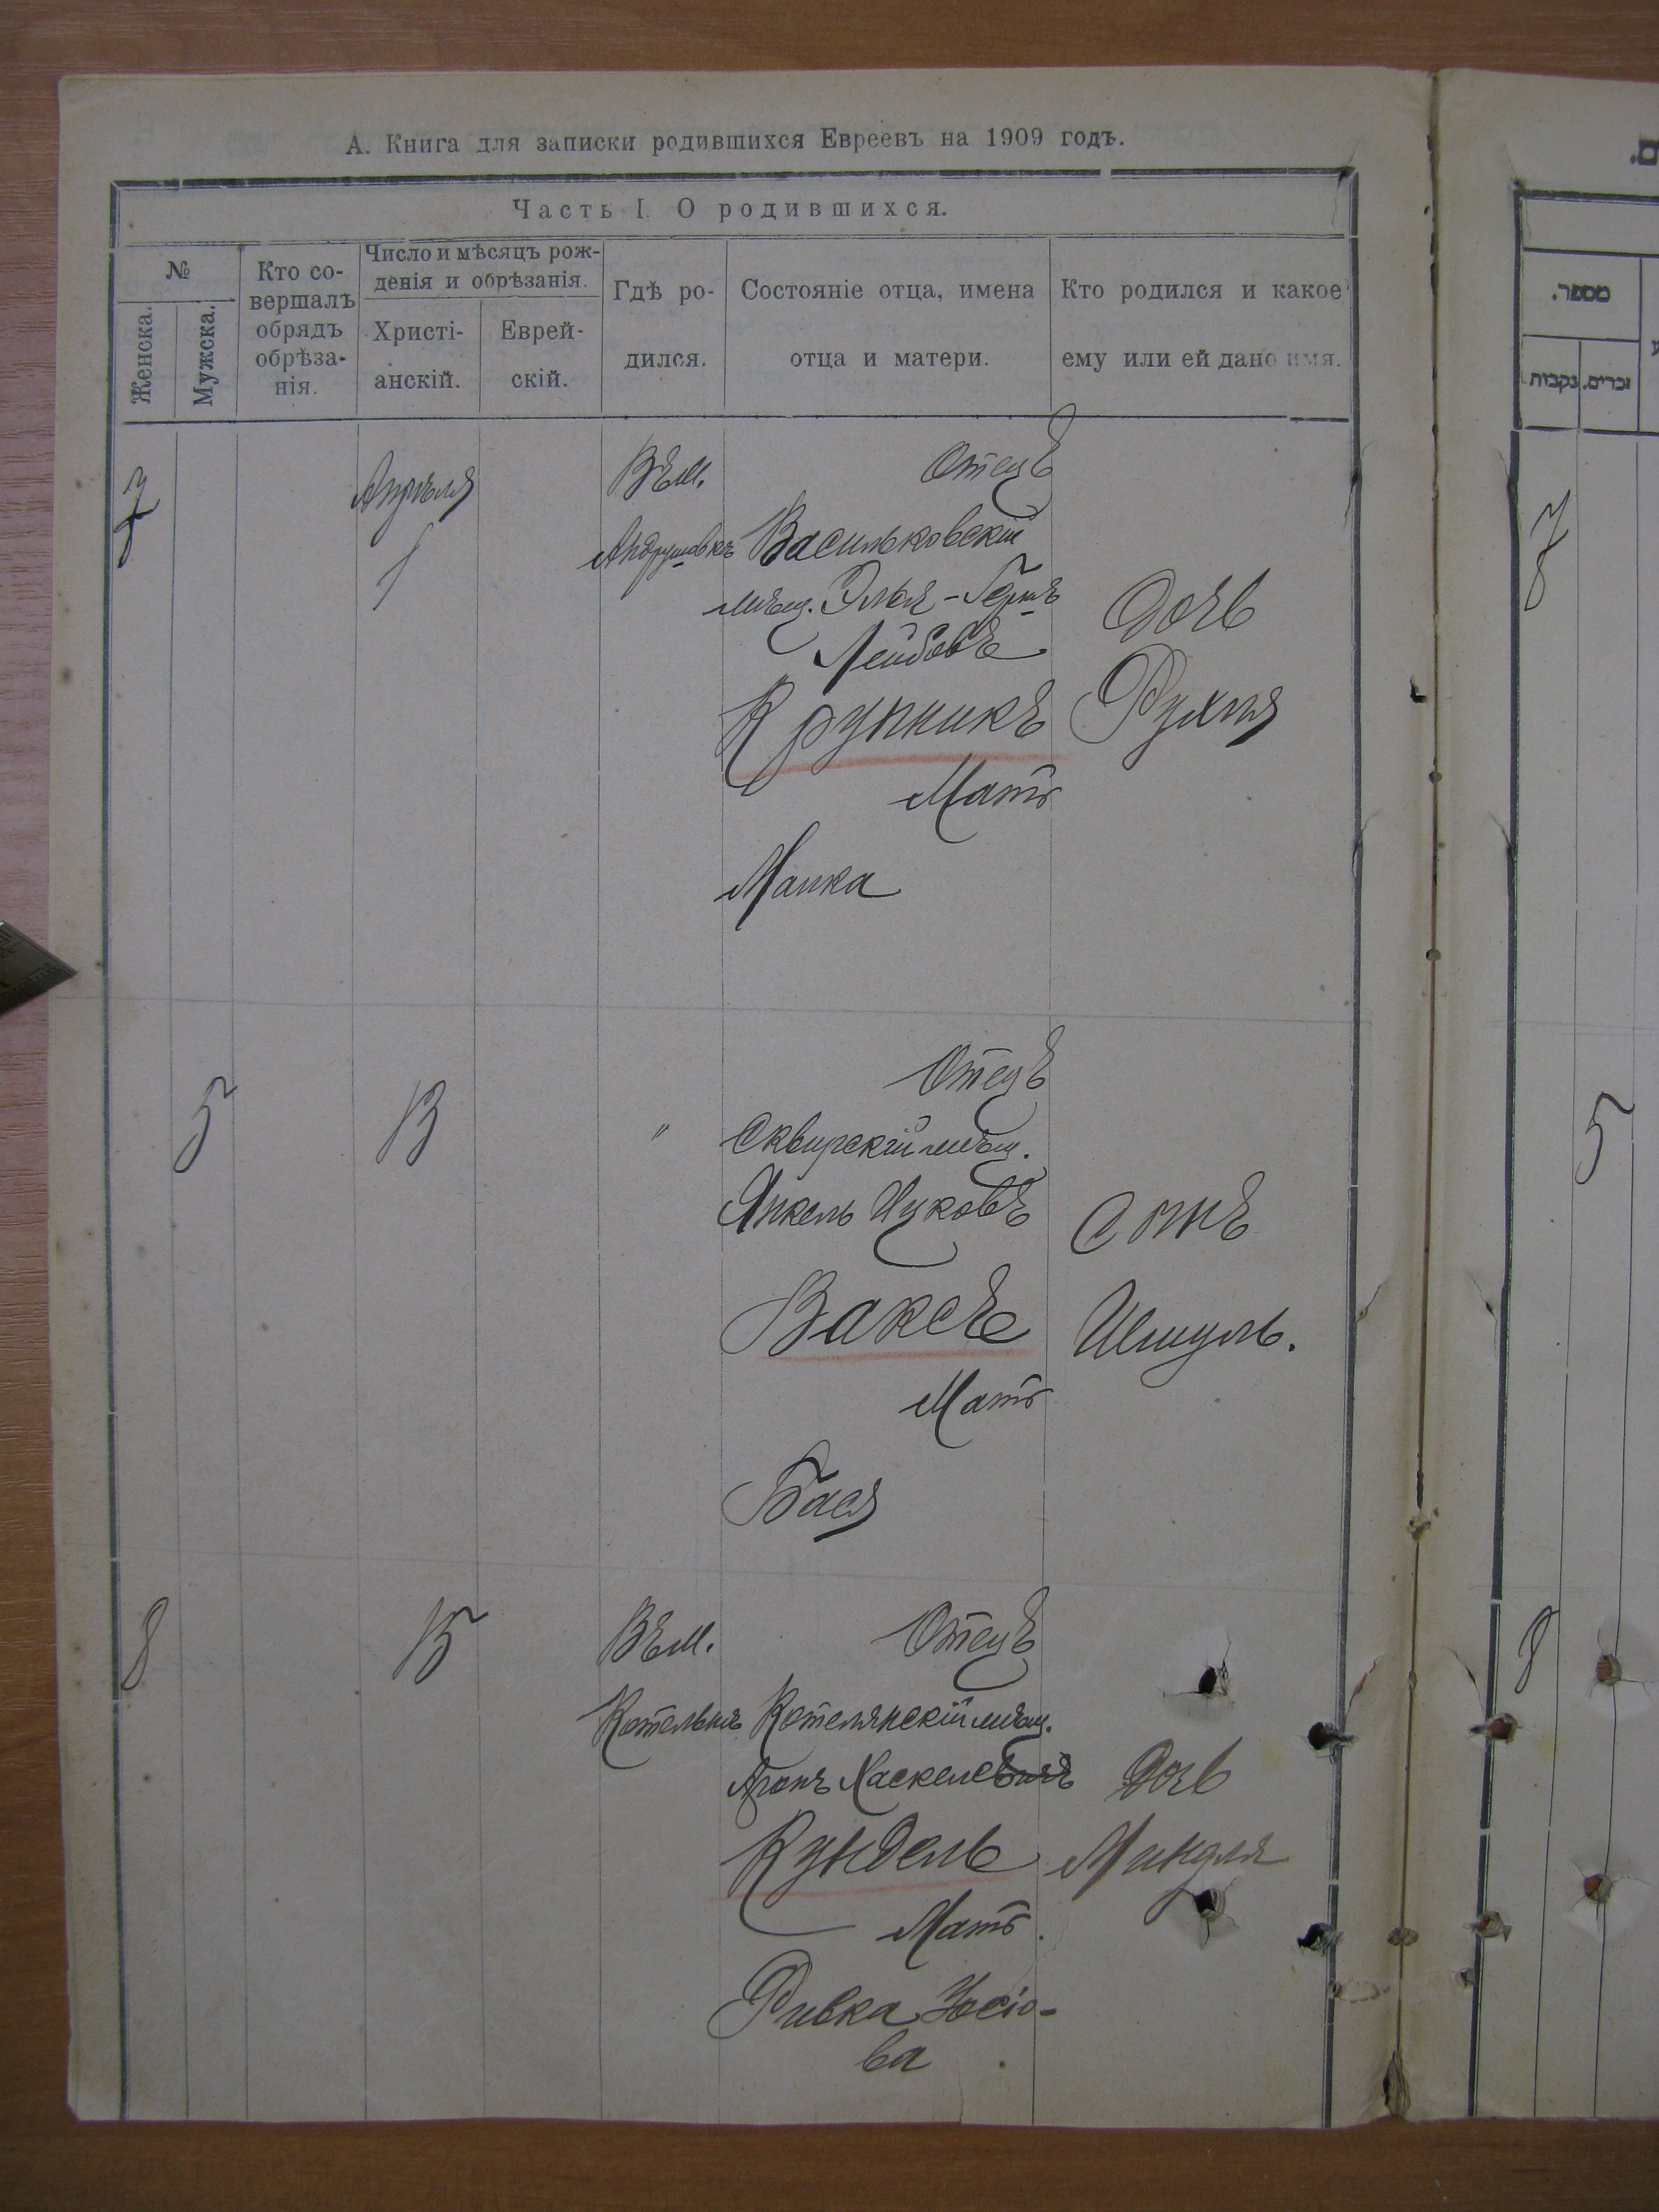 А. Книга для записки родившихся Евреевъ на 1909 годъ.
Часть I О родившихся.
№
Женска.
Мужска.
Кто со-
вершалъ
обрядъ
обрѣза-
нія.
Число и мѣсяцъ рож-
денія и обрѣзанія.
Христі-
анскій.
Еврей-
скій.
Гдѣ ро-
дился.
Состояніе отца, имена
отца и матери.
Кто родился и какое
ему или ей дано имя.
7
Апрѣля
1
Въ м.
Андрушовкѣ
Отецъ
Васильковскій
мѣщ. Элья-Герш
Лейбовъ
Крупникъ
Мать
Малка
Дочь
Рухля
5
13
"
Отецъ
Сквирскій мѣщ.
Янкель Ицковъ
Ваксъ
Мать
Бася
Сынъ
Шмуль.
8
15
Въ м.
Котельнѣ
Отецъ
Котелянскій мѣщ.
Аронъ
Кундель
Мать.
Ривка Іосіо-
ва
Дочь
Миндля
מספר.
נקבות
זכרים.
7
5
8